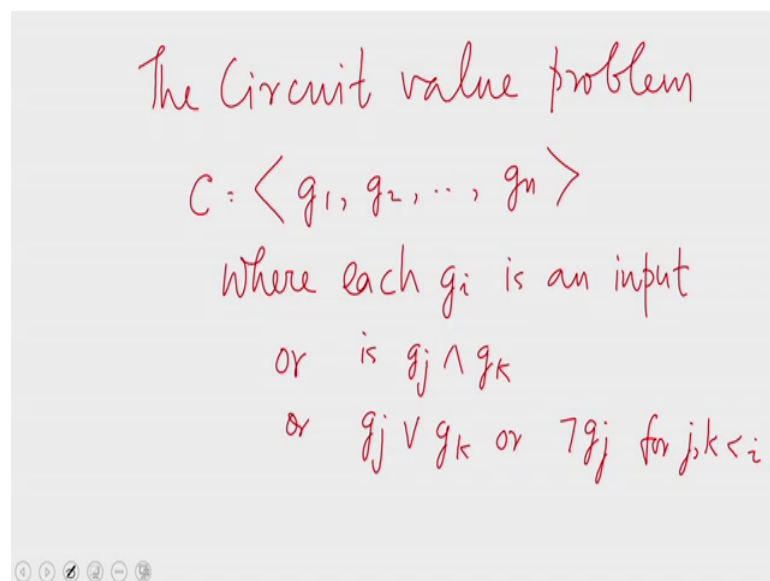 The Circuit value problem
C = < g1, g2, .., gn >
where each gi is an input
or is gj ∧ gk
or gj ∨ gk or ¬gj for j,k < i